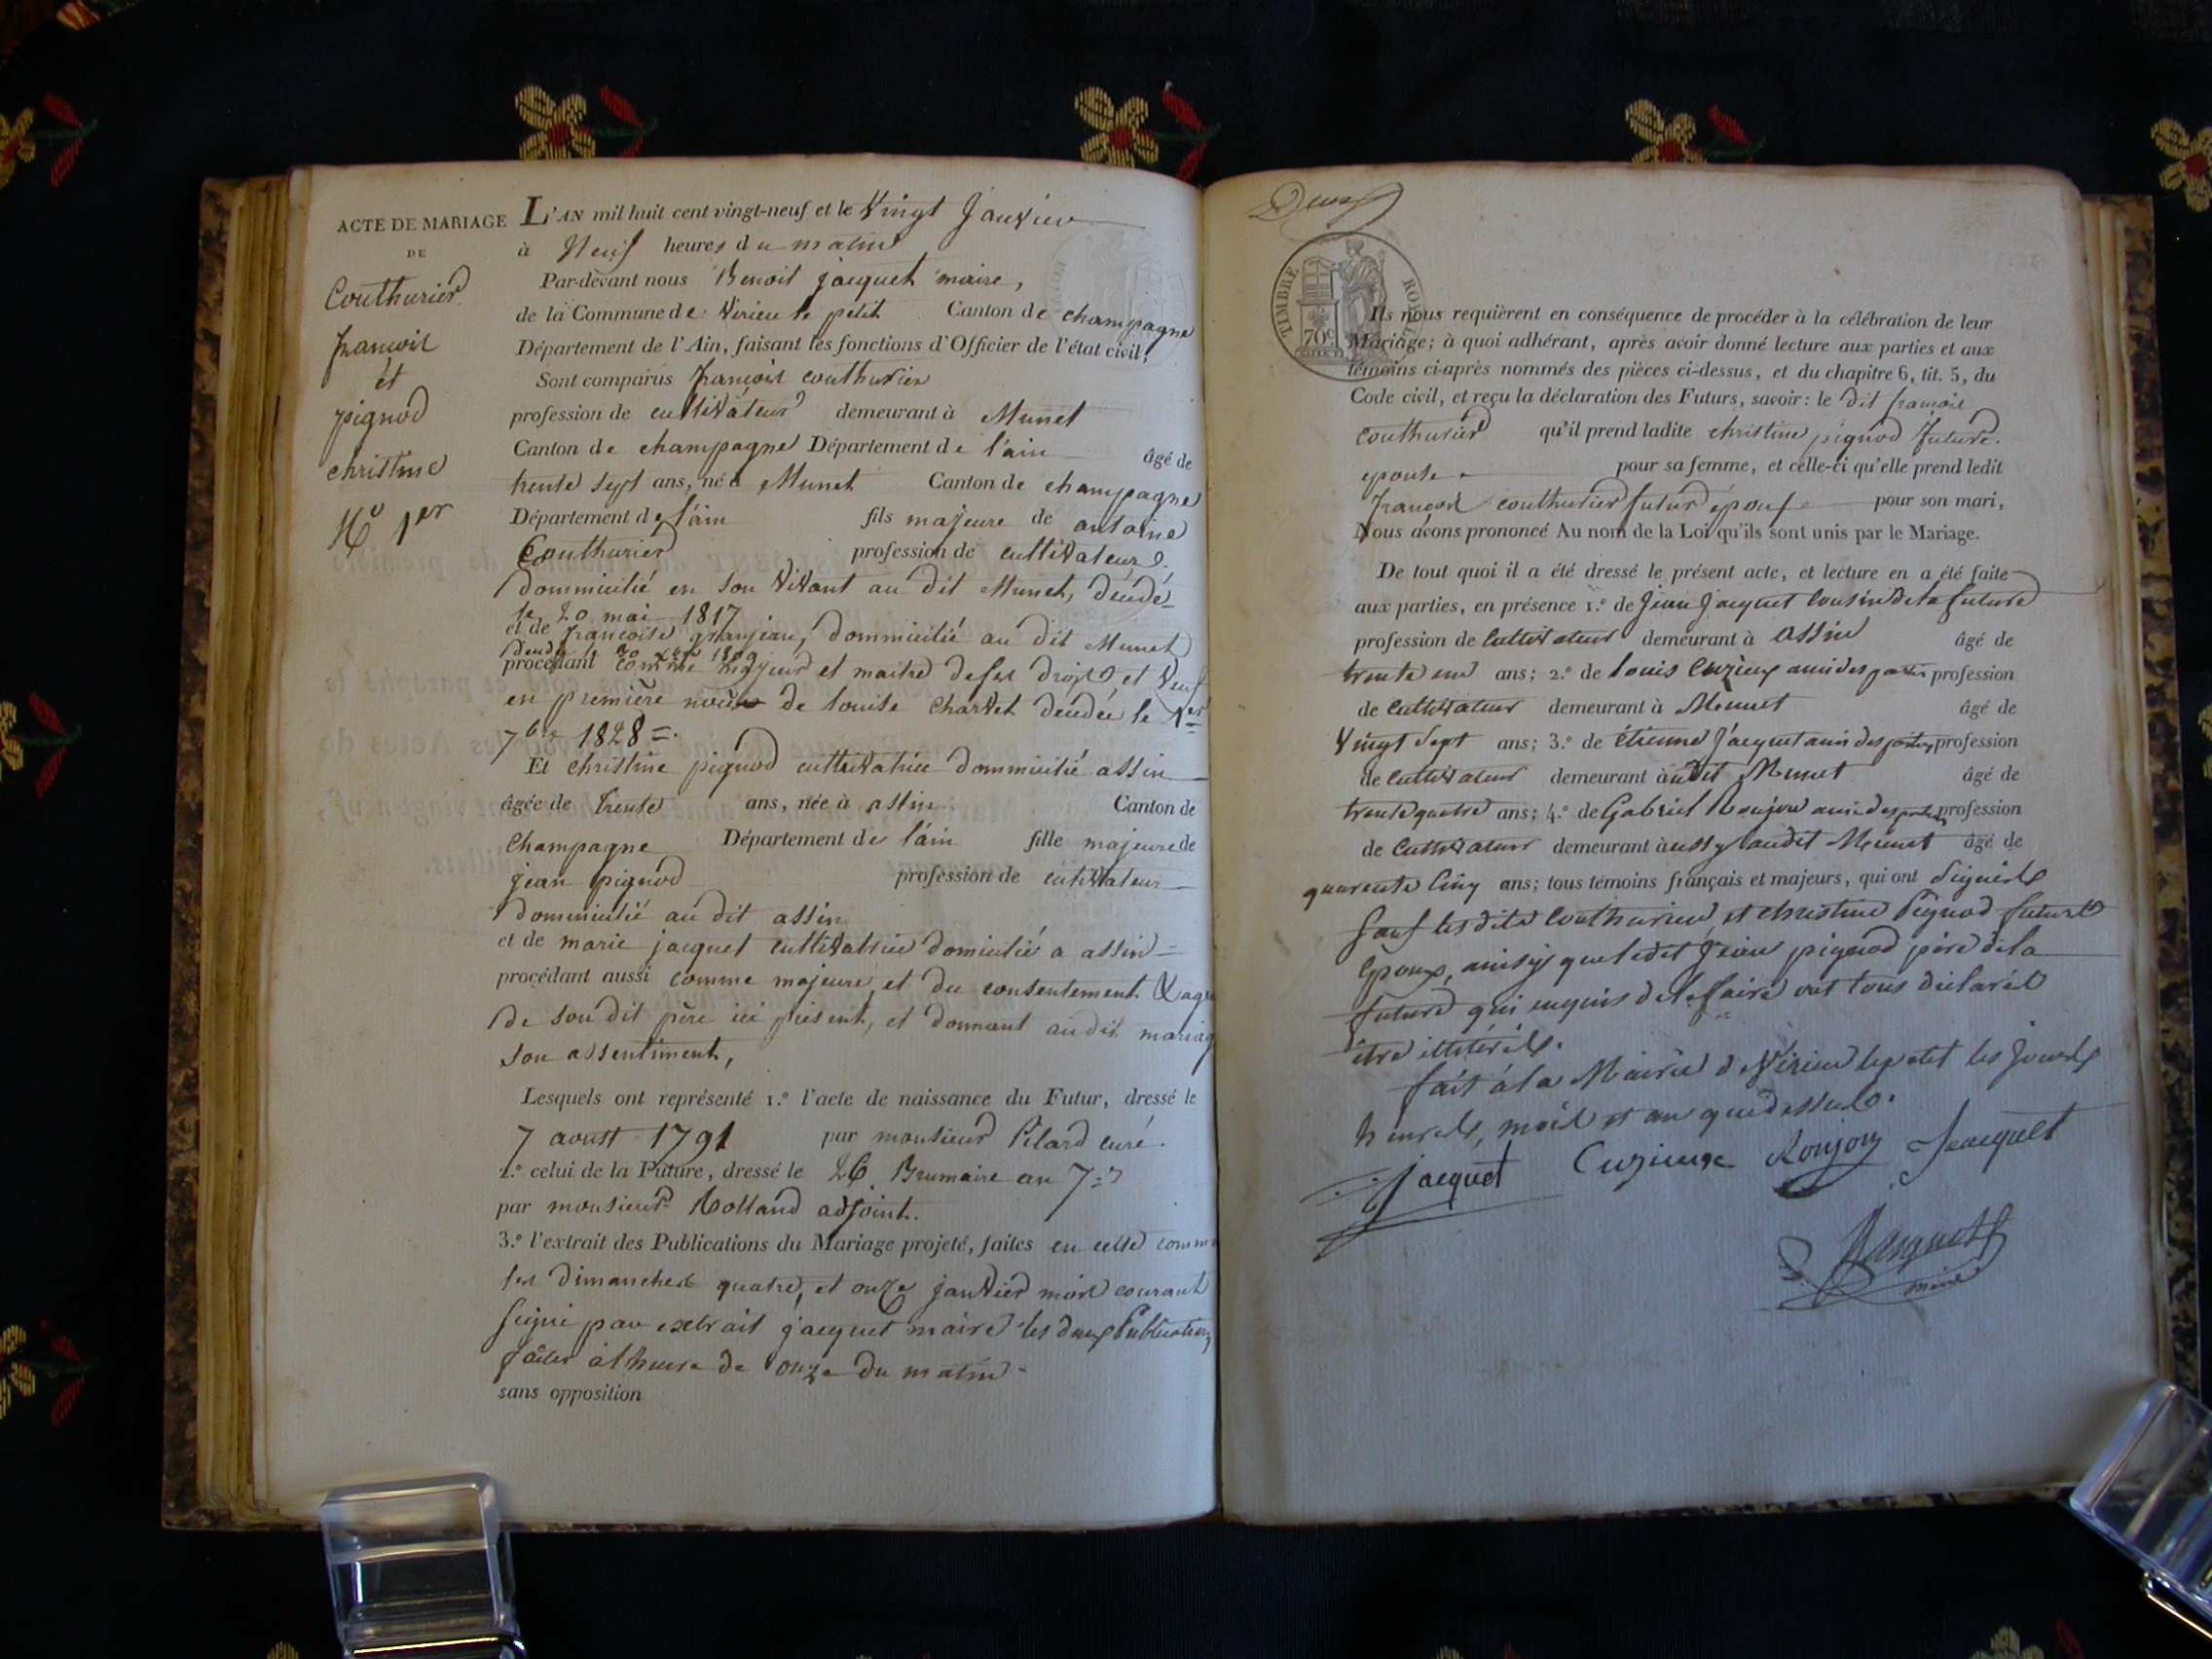 ACTE DE MARIAGE
DE
Couthurier
françois
et
pignod
christine
No 1er
L'AN mil huit cent vingt-neuf et le Vingt Janvier
à Neuf heures du matin
Par-devant nous Benoit jacquet maire,
de la Commune de Virieu le petit Canton de champagne
Département de l'Ain, faisant les fonctions d'Officier de l'état civil,
Sont comparus françois couthurier
profession de cultivateur demeurant à Munet
Canton de champagne Département de l'ain âgé de
trente sept ans, né à Munet Canton de champagne
Département de l'ain fils majeure de antoine
Couthurier profession de cultivateur
dommicilié en son vivant au dit Munet, décédé
le 20 mai 1817
et de francoise granjean, dommicilié au dit Munet
procédant comme majeur et maitre de ses droits et veuf
en première noces de louise Charvet décédée le 1er
7bre 1828
Et christine pignod cultivatrice dommicilié assin
âgée de trente ans, née à assin Canton de
champagne Département de l'ain fille majeure de
jean pignod profession de cultivateur
dommicilié au dit assin
et de marie jacquet cultivatrice domicilié a assin
procédant aussi comme majeure, et du consentement
de son dit père ici présent, et donnant audit mariag
son assentiment,
Lesquels ont représenté 1.º l'acte de naissance du Futur, dressé le
7 aoust 1791 par monsieur Pilard curé.
2.º celui de la Future, dressé le 26 Brumaire an 7
par monsieur Rolland adjoint.
3.º l'extrait des Publications du Mariage projeté, faites en cette comm
les dimanches quatre, et onze janvier mois courant
signé par extrait jacquet maire les deux Publications
faites a l'heure de onze du matin
sans opposition
Deux
TIMBRE ROYAL
70c
Ils nous requièrent en conséquence de procéder à la célébration de leur
Mariage; à quoi adhérant, après avoir donné lecture aux parties et aux
témoins ci-après nommés des pièces ci-dessus, et du chapitre 6, tit. 5, du
Code civil, et reçu la déclaration des Futurs, savoir: le dit françois
couthurier qu'il prend ladite christine pignod future
epouse pour sa femme, et celle-ci qu'elle prend ledit
françois couthurier futur époux pour son mari,
Nous avons prononcé Au nom de la Loi qu'ils sont unis par le Mariage.
De tout quoi il a été dressé le présent acte, et lecture en a été faite
aux parties, en présence 1.º de Jean Jacquet Cousin de la future
profession de Cultivateur demeurant à Assin âgé de
trente un ans; 2.º de louis Cuzieux ami des parties profession
de Cultivateur demeurant à Munet âgé de
Vingt Sept ans; 3.º de étienne Jacquet ami des parties profession
de Cultivateur demeurant audit Munet âgé de
trente quatre ans; 4.º de Gabriel Roujou ami des parties profession
de Cultivateur demeurant aussy audit Munet âgé de
quarente Cinq ans; tous témoins français et majeurs, qui ont Signés
Sauf lesdits Couthurier, et christine Pignod futurs
Epoux, ainsy que ledit Jean pignod père de la
future qui enquis de le faire ont tous déclarés
être illitérés.
fait a la Mairie de Virieu le petit les jours
heures, mois et an que dessus.
Jacquet Cuzieux Roujou Jacquet
Jacquet
maire